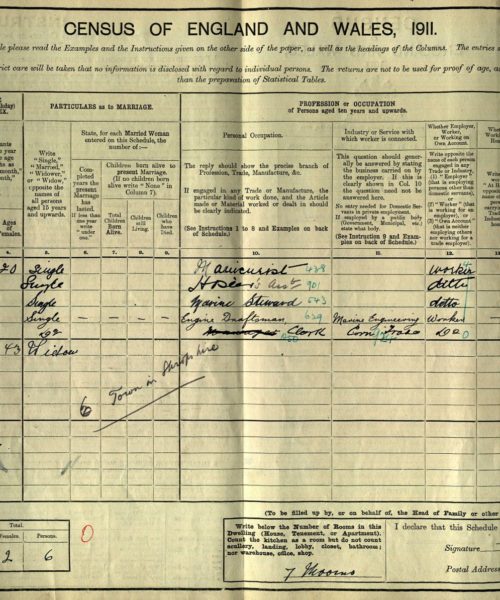 CENSUS OF ENGLAND AND WALES, 1911.
le please read the Examples and the Instructions given on the other side of the paper, as well as the headings of the Columns. The entries s
rict care will be taken that no information is disclosed with regard to individual persons. The returns are not to be used for proof of age, as
than the preparation of Statistical Tables.
PARTICULARS as to MARRIAGE.
PROFESSION or OCCUPATION
of Persons aged ten years and upwards.
Write
"Single,"
"Married,"
"Widower,"
or "Widow,"
opposite the
names of
all persons
aged 15 years
and upwards.
State, for each Married Woman
entered on this Schedule, the
number of:—
Completed
years the
present
Marriage
has
lasted.
If less
than one
year write
"under
one."
Children born alive to
present Marriage.
(If no children born
alive write "None" in
Column 7).
Total
Children
Born
Alive.
Children
still
Living.
Children
who
have
Died.
Personal Occupation.
The reply should show the precise branch of
Profession, Trade, Manufacture, &c.
If engaged in any Trade or Manufacture, the
particular kind of work done, and the Article
made or Material worked or dealt in should
be clearly indicated.
(See Instructions 1 to 8 and Examples on
back of Schedule.)
Industry or Service with
which worker is connected.
This question should gener-
ally be answered by stating
the business carried on by
the employer. If this is
clearly shown in Col. 10
the question need not be
answered here.
No entry needed for Domestic Ser-
vants in private employment.
If employed by a public body
(Government, Municipal, etc.)
state what body.
(See Instruction 9 and Exam-
ples on back of Schedule.)
Whether Employer,
Worker,
or Working on
Own Account.
Write opposite the
name of each person
engaged in any
Trade or Industry,
(1) "Employer"
(that is employing
persons other than
domestic servants),
or
(2) "Worker" (that
is working for an
employer), or
(3) "Own Account"
(that is neither
employing others
nor working for a
trade employer).
Ages
of
Females.
4. 5. 6. 7. 8. 9. 10. 11. 12.
20 Single Manicurist 428 Worker
Single 901 ditto
Single Marine Steward 543 ditto
Single – – – – Engine Draftsman 629 Marine Engineering Worker
Do Clerk Corn Trade Do
43 Widow
Town in Shropshire
6
(To be filled up by, or on behalf of, the Head of Family or other
Total.
Females. Persons.
2 6
0
Write below the Number of Rooms in this
Dwelling (House, Tenement, or Apartment).
Count the kitchen as a room but do not count
scullery, landing, lobby, closet, bathroom;
nor warehouse, office, shop.
7 Rooms
I declare that this Schedule
Signature
Postal Address